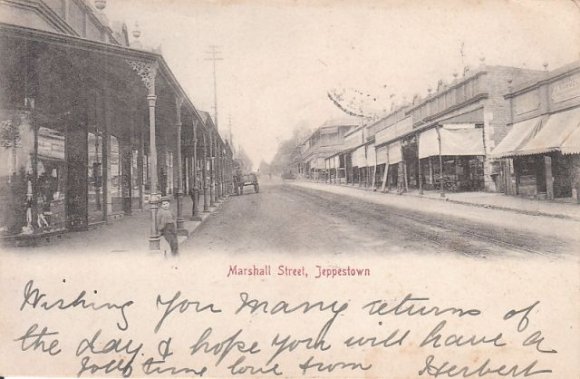 Marshall Street, Jeppestown
Wishing You Many returns of
the day, & hope you will have a
Jolly time love from Herbert